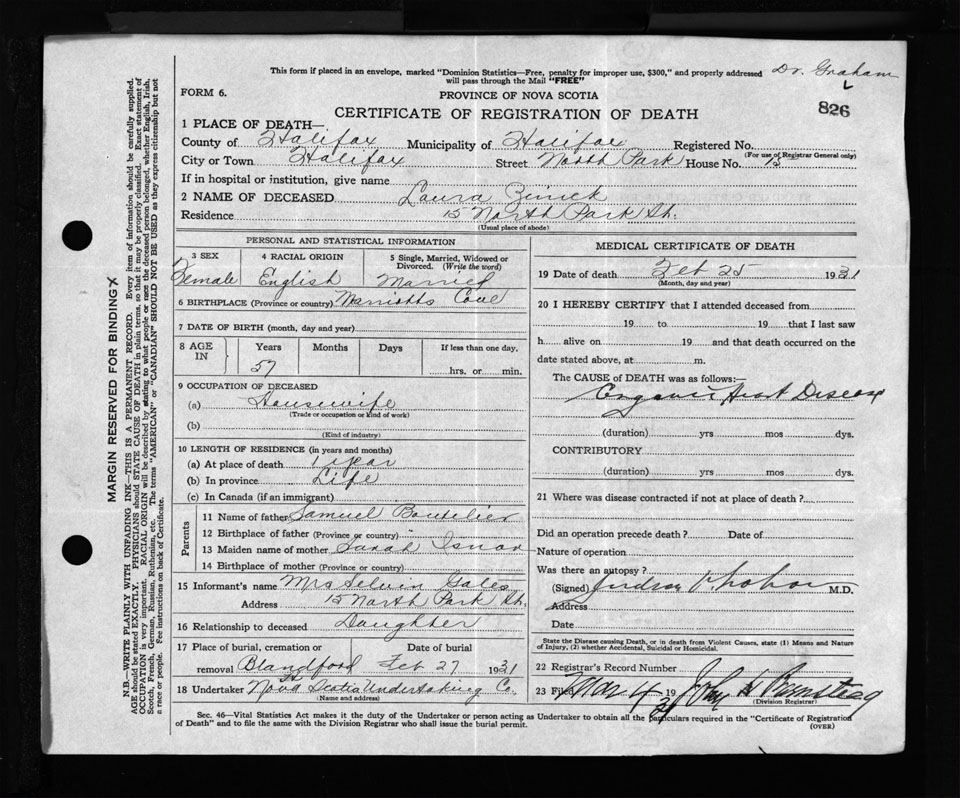 This form if placed in an envelope, marked "Dominion Statistics—Free, penalty for improper use, $300," and properly addressed
will pass through the Mail "FREE"
Dr. Graham
FORM 6.
PROVINCE OF NOVA SCOTIA
826
CERTIFICATE OF REGISTRATION OF DEATH
1 PLACE OF DEATH—
County of Halifax Municipality of Halifax Registered No.
(For use of Registrar General only)
City or Town Halifax Street North Park House No. 15
If in hospital or institution, give name
2 NAME OF DECEASED Laura Zinick
Residence 15 North Park St.
(Usual place of abode)
PERSONAL AND STATISTICAL INFORMATION
3 SEX 4 RACIAL ORIGIN 5 Single, Married, Widowed or
Divorced. (Write the word)
Female English Married
6 BIRTHPLACE (Province or country) Marriotts Cove
7 DATE OF BIRTH (month, day and year)
8 AGE IN Years Months Days If less than one day,
57 hrs. or min.
9 OCCUPATION OF DECEASED
(a) Housewife
(Trade or occupation or kind of work)
(b)
(Kind of industry)
10 LENGTH OF RESIDENCE (in years and months)
(a) At place of death 1 year
(b) In province Life
(c) In Canada (if an immigrant)
Parents
11 Name of father Samuel Boutelier
12 Birthplace of father (Province or country)
13 Maiden name of mother Sarah Isnor
14 Birthplace of mother (Province or country)
15 Informant's name Mrs Selvin Gales
Address 15 North Park St.
16 Relationship to deceased Daughter
17 Place of burial, cremation or Date of burial
removal Blandford Feb 27 1931
18 Undertaker Nova Scotia Undertaking Co.
(Name and address)
MEDICAL CERTIFICATE OF DEATH
19 Date of death Feb 25 1931
(Month, day and year)
20 I HEREBY CERTIFY that I attended deceased from
19 to 19 that I last saw
h alive on 19 and that death occurred on the
date stated above, at m.
The CAUSE of DEATH was as follows:—
Organic Heart Disease
(duration) yrs mos dys.
CONTRIBUTORY
(duration) yrs mos dys.
21 Where was disease contracted if not at place of death?
Did an operation precede death? Date of
Nature of operation
Was there an autopsy?
(Signed) Judson Graham M.D.
Address
Date
State the Disease causing Death, or in death from Violent Causes, state (1) Means and Nature
of Injury, (2) whether Accidental, Suicidal or Homicidal.
22 Registrar's Record Number
23 Filed Mar 4 1931
(Division Registrar)
Sec. 46—Vital Statistics Act makes it the duty of the Undertaker or person acting as Undertaker to obtain all the particulars required in the "Certificate of Registration
of Death" and to file the same with the Division Registrar who shall issue the burial permit.
(OVER)
MARGIN RESERVED FOR BINDING
N.B.—WRITE PLAINLY WITH UNFADING INK—THIS IS A PERMANENT RECORD. Every item of information should be carefully supplied.
AGE should be stated EXACTLY. PHYSICIANS should STATE CAUSE OF DEATH in plain terms, so that it may be properly classified. Exact statement of
OCCUPATION is very important. RACIAL ORIGIN will be described by stating to what people or race the deceased person belonged, whether English, Irish,
Scotch, French, German, Russian, Ruthenian, etc. The terms "AMERICAN" or "CANADIAN" SHOULD NOT BE USED as they express citizenship but not
a race or people. Fee instructions on back of Certificate.